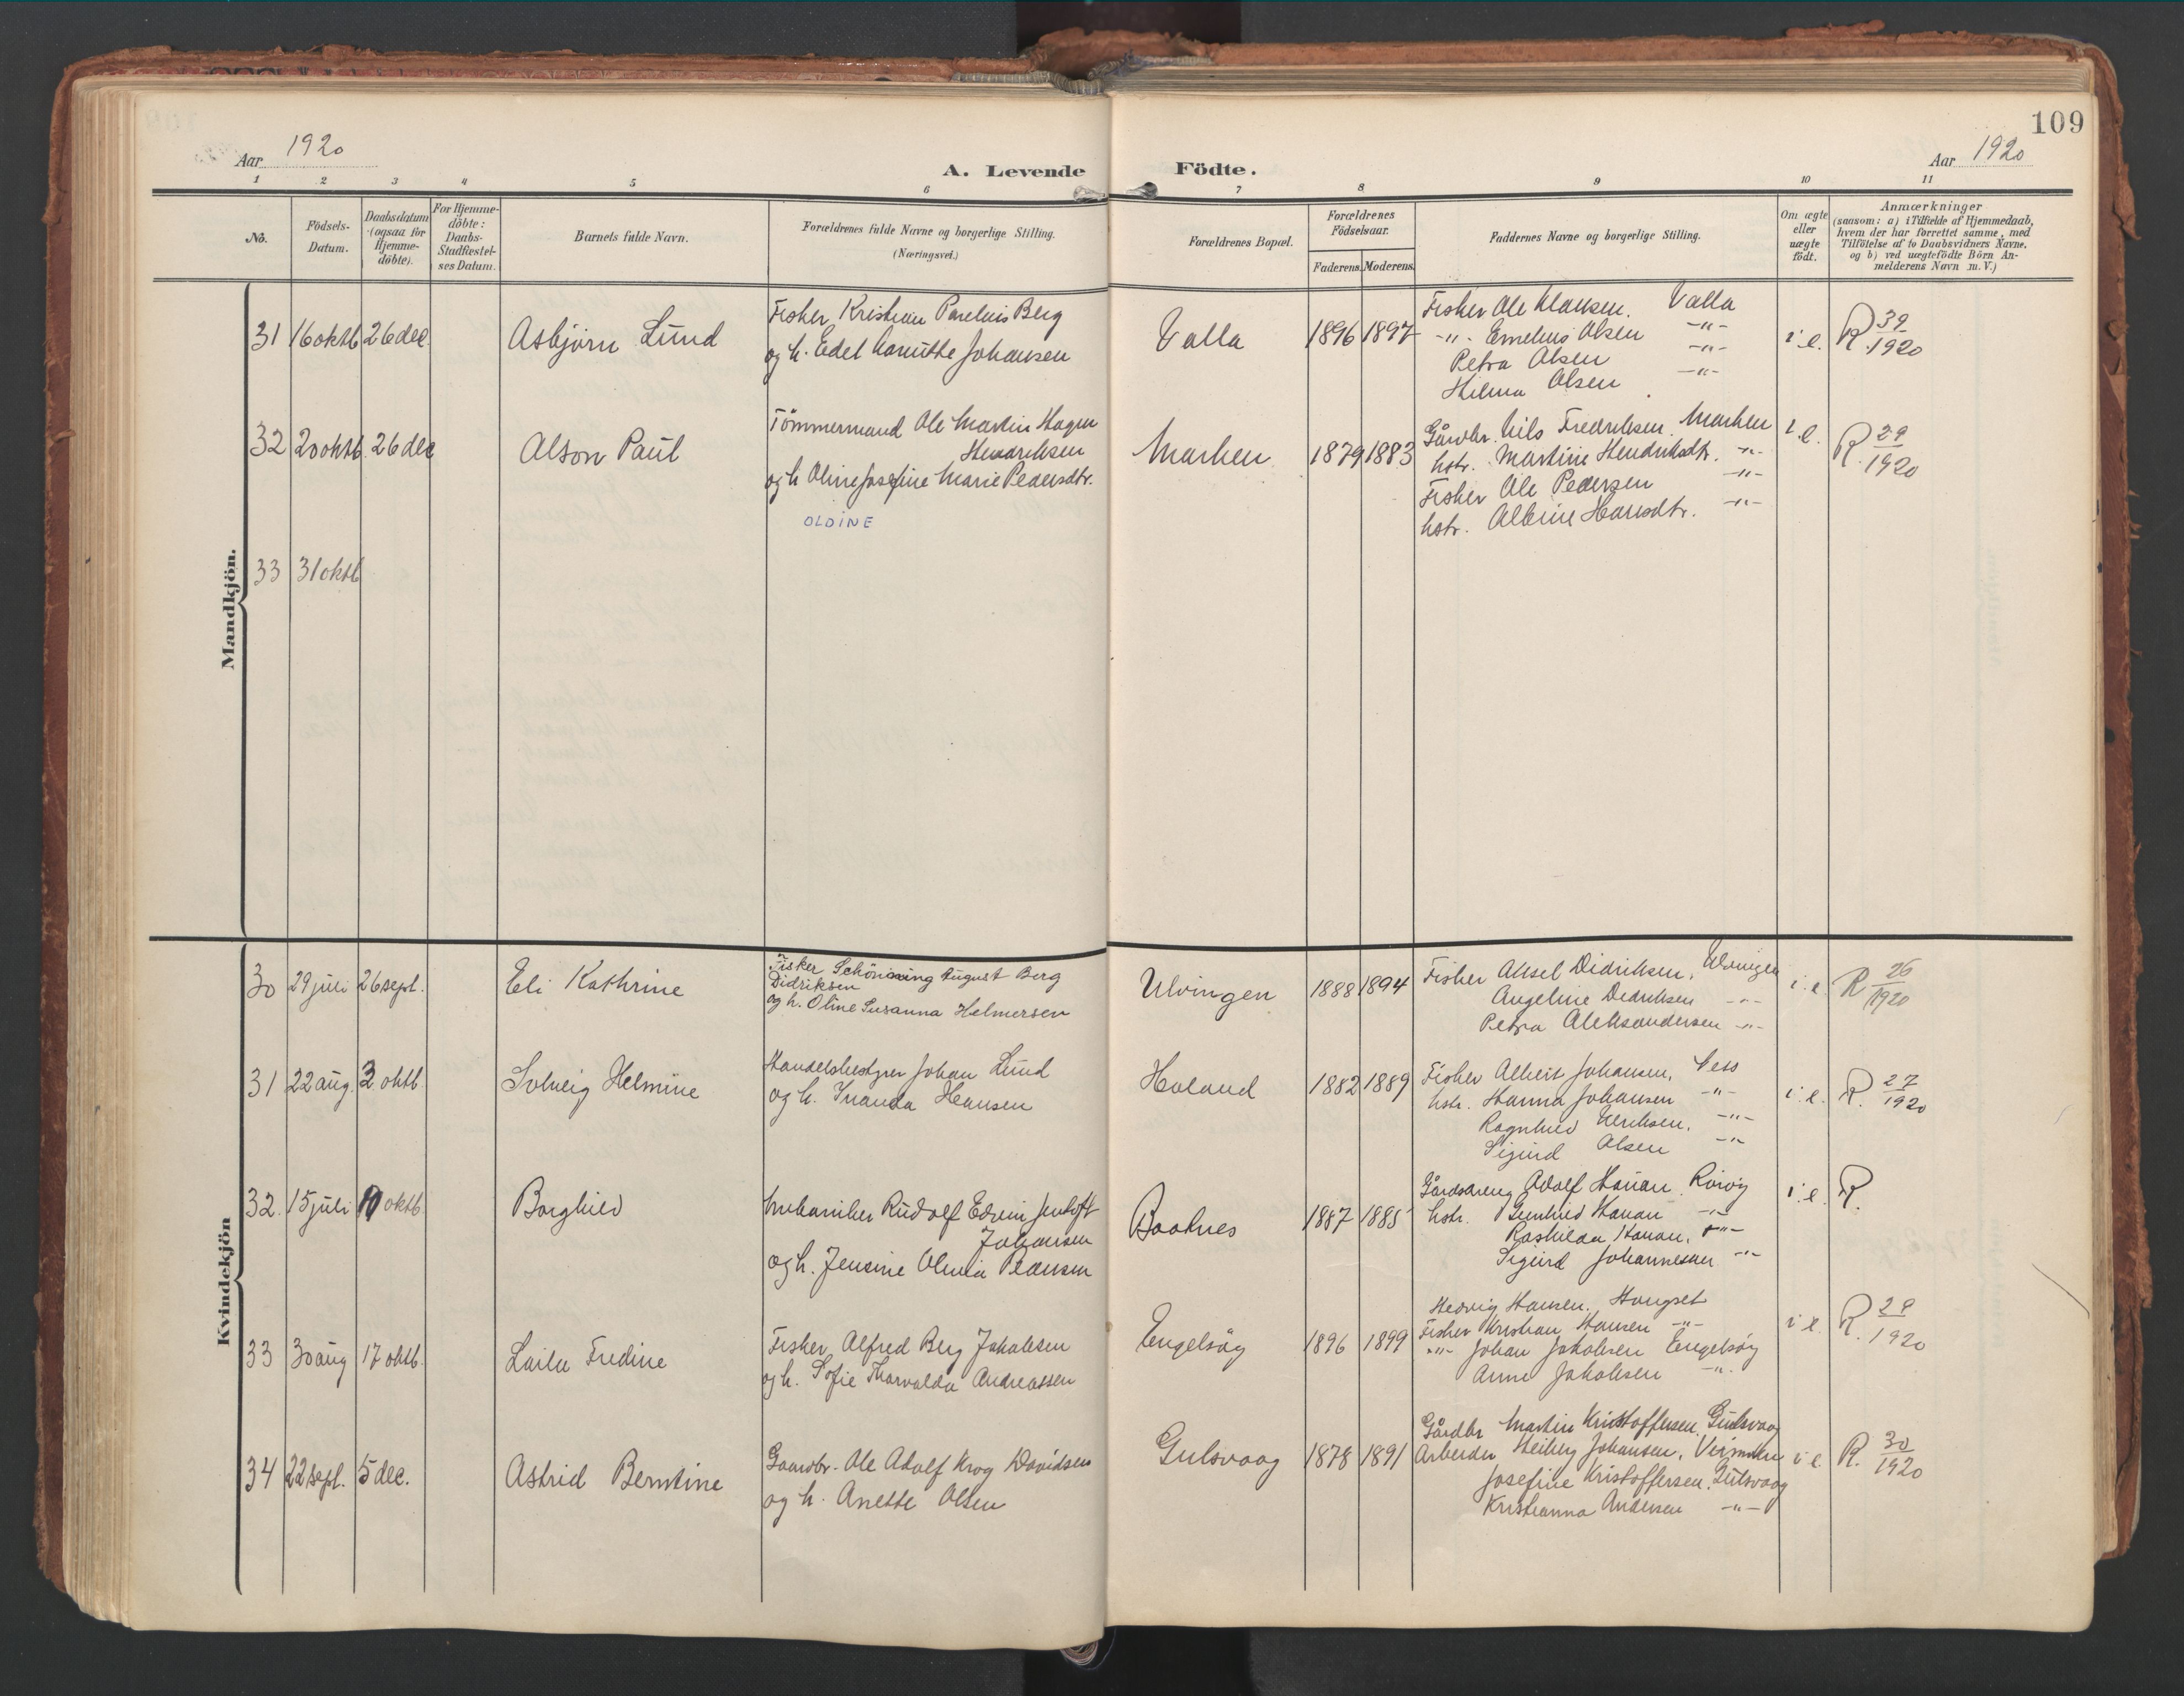 109
Aar 1920
A. Levende Födte.
Aar 1920
1 2 3 4 5 6 7 8 9 10 11
No.
Födsels-
Datum.
Daabsdatum
(ogsaa for
Hjemme-
döbte).
For Hjemme-
döbte:
Daabs-
Stadfæstel-
ses Datum.
Barnets fulde Navn.
Forældrenes fulde Navne og borgerlige Stilling.
(Næringsvei.)
Forældrenes Bopæl.
Forældrenes
Födselsaar.
Faderens. Moderens.
Faddernes Navne og borgerlige Stilling.
Om ægte
eller
uægte
födt.
Anmærkninger
(saasom: a) i Tilfælde af Hjemmedaab,
hvem der har forrettet samme, med
Tilföielse af to Daabsvidners Navne.
og b) ved uægtefödte Börn An-
melderens Navn m. V.)
Mandkjön.
31 16 oktb 26 dec. Asbjörn Lund
Fisker Kristian Parelius Berg
og h. Edel Hanütte Johansen
Valla 1896 1897
Fisker Ole Klausen. Valla
-"- Emelius Olsen -"-
Petra Olsen -"-
Hilma Olsen -"-
i e. R 39
1920
32 20 oktb. 26 dec Alson Paul
Tömmermand Ole Martin Hagen
Hendriksen
og h Oline Josefine Marie Pedersdtr.
OLDINE
Marken 1879 1883
Gårdbr. Nils Fredriksen. Marken
hstr. Martine Hendriksdtr. -"-
Fisker Ole Pedersen -"-
hstr. Albine Hansdtr. -"-
i e. R. 29
1920
33 31 oktb
Kvindekjön
30 29 juli 26 sept. Eli Kathrine
Fisker Schönning August Berg
Didriksen
og h. Oline Susanna Helmersen
Ulvingen 1888 1894
Fisker Aksel Didriksen, Ulvingen
Angeline Didriksen -"-
Petra Aleksandersen -"-
i. e. R 26
1920
31 22 aug. 3 oktb. Solveig Helmine
Handelsbestyrer Johan Lund
og h. Inanda Hansen
Holand 1882 1889
Fisker Albert Johansen, Vess
hstr. Hanna Johansen -"-
Ragnhild Ulriksen. -"-
Sigurd Olsen -"-
i. e. R. 27
1920
32. 15 juli 10 oktb. Borghild
Mekaniker Rudolf Edvin Jentoft
Johansen
og h. Jensine Olivia Pedersen
Baaknes 1887 1885
Gårdsdreng Adolf Hanan. Rörög
hstr. Gunhild Hanan -"-
Raskilda Hanan. -"-
Sigurd Johannesen -"-
i. e. R.
33 30 aug 17 oktb. Laila Fredine
Fisker Alfred Berg Jakobsen
og h. Sofie Thorvalda Andreassen
Engelsöy 1896 1899
Hedvig Hansen. Haugset
Fisker Kristian Hansen -"-
-"- Johan Jakobsen Engelsöy
Anne Jakobsen -"-
i e. R. 28
1920
34 22 sept. 5 dec. Astrid Berntine
Gaardbr. Ole Adolf Krog Davidsen
og h. Anette Olsen
Gulsvaag 1878 1891
Gårdbr Martin Kristoffersen. Gulsvaag
Arbeider Heiberg Johansen,
Josefine Kristoffersen. Gulsvaag
Kristianna Andersen -"-
i e. R. 30
1920